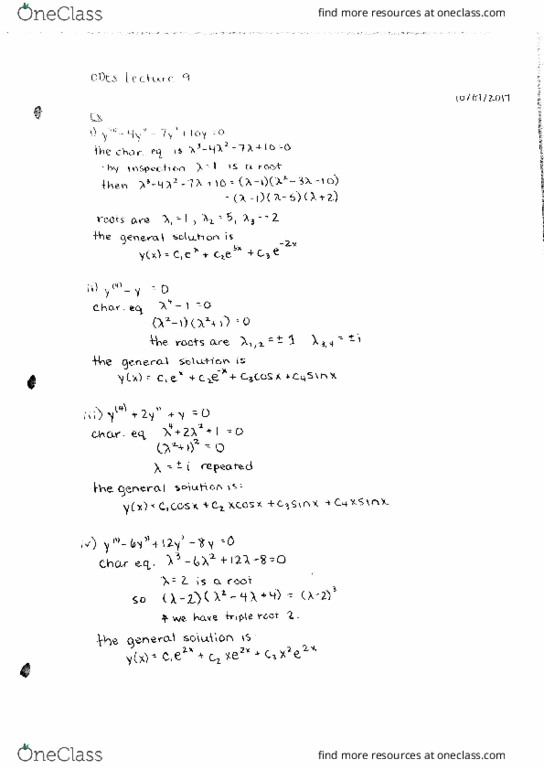 OneClass
find more resources at oneclass.com
ODEs Lecture 9
10/ /2017
Ex
i) y''' - 4y'' - 7y' + 10y = 0
the char. eq is λ³ - 4λ² - 7λ + 10 = 0
by inspection λ = 1 is a root
then λ³ - 4λ² - 7λ + 10 = (λ-1)(λ² - 3λ - 10)
= (λ-1)(λ-5)(λ+2)
roots are λ₁ = 1, λ₂ = 5, λ₃ = -2
the general solution is
y(x) = C₁eˣ + C₂e⁵ˣ + C₃e⁻²ˣ
ii) y⁽⁴⁾ - y = 0
char. eq λ⁴ - 1 = 0
(λ² - 1)(λ² + 1) = 0
the roots are λ₁,₂ = ± 1 λ₃,₄ = ± i
the general solution is
y(x) = C₁eˣ + C₂e⁻ˣ + C₃cosx + C₄sinx
iii) y⁽⁴⁾ + 2y'' + y = 0
char. eq λ⁴ + 2λ² + 1 = 0
(λ² + 1)² = 0
λ = ± i repeated
the general solution is:
y(x) = C₁cosx + C₂xcosx + C₃sinx + C₄xsinx
iv) y''' - 6y'' + 12y' - 8y = 0
char eq. λ³ - 6λ² + 12λ - 8 = 0
λ = 2 is a root
so (λ-2)(λ² - 4λ + 4) = (λ-2)³
we have triple root 2.
the general solution is
y(x) = C₁e²ˣ + C₂xe²ˣ + C₃x²e²ˣ
OneClass
find more resources at oneclass.com